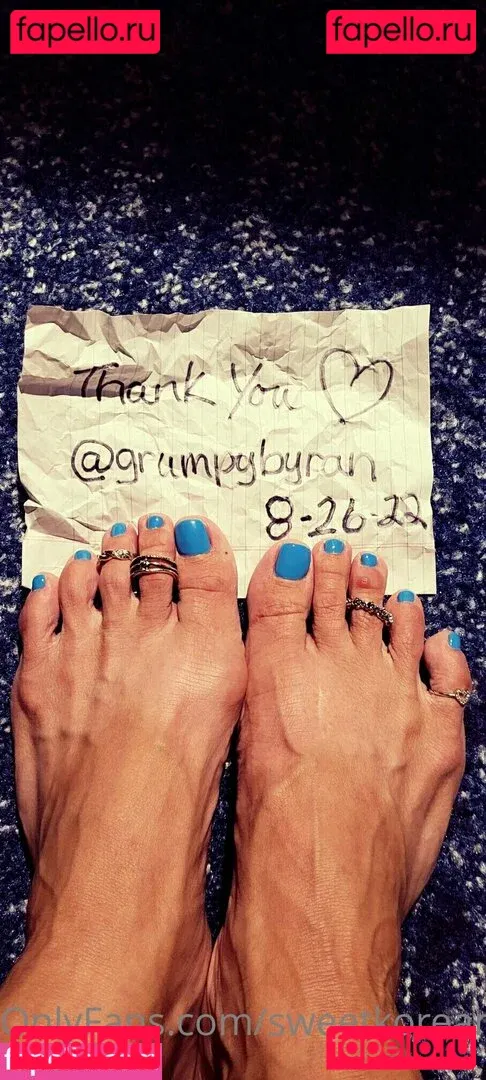 fapello.ru fapello.ru
Thank You
@grumpybyran
8-26-22
OnlyFans.com/sweetkorean
fapello.ru fapello.ru